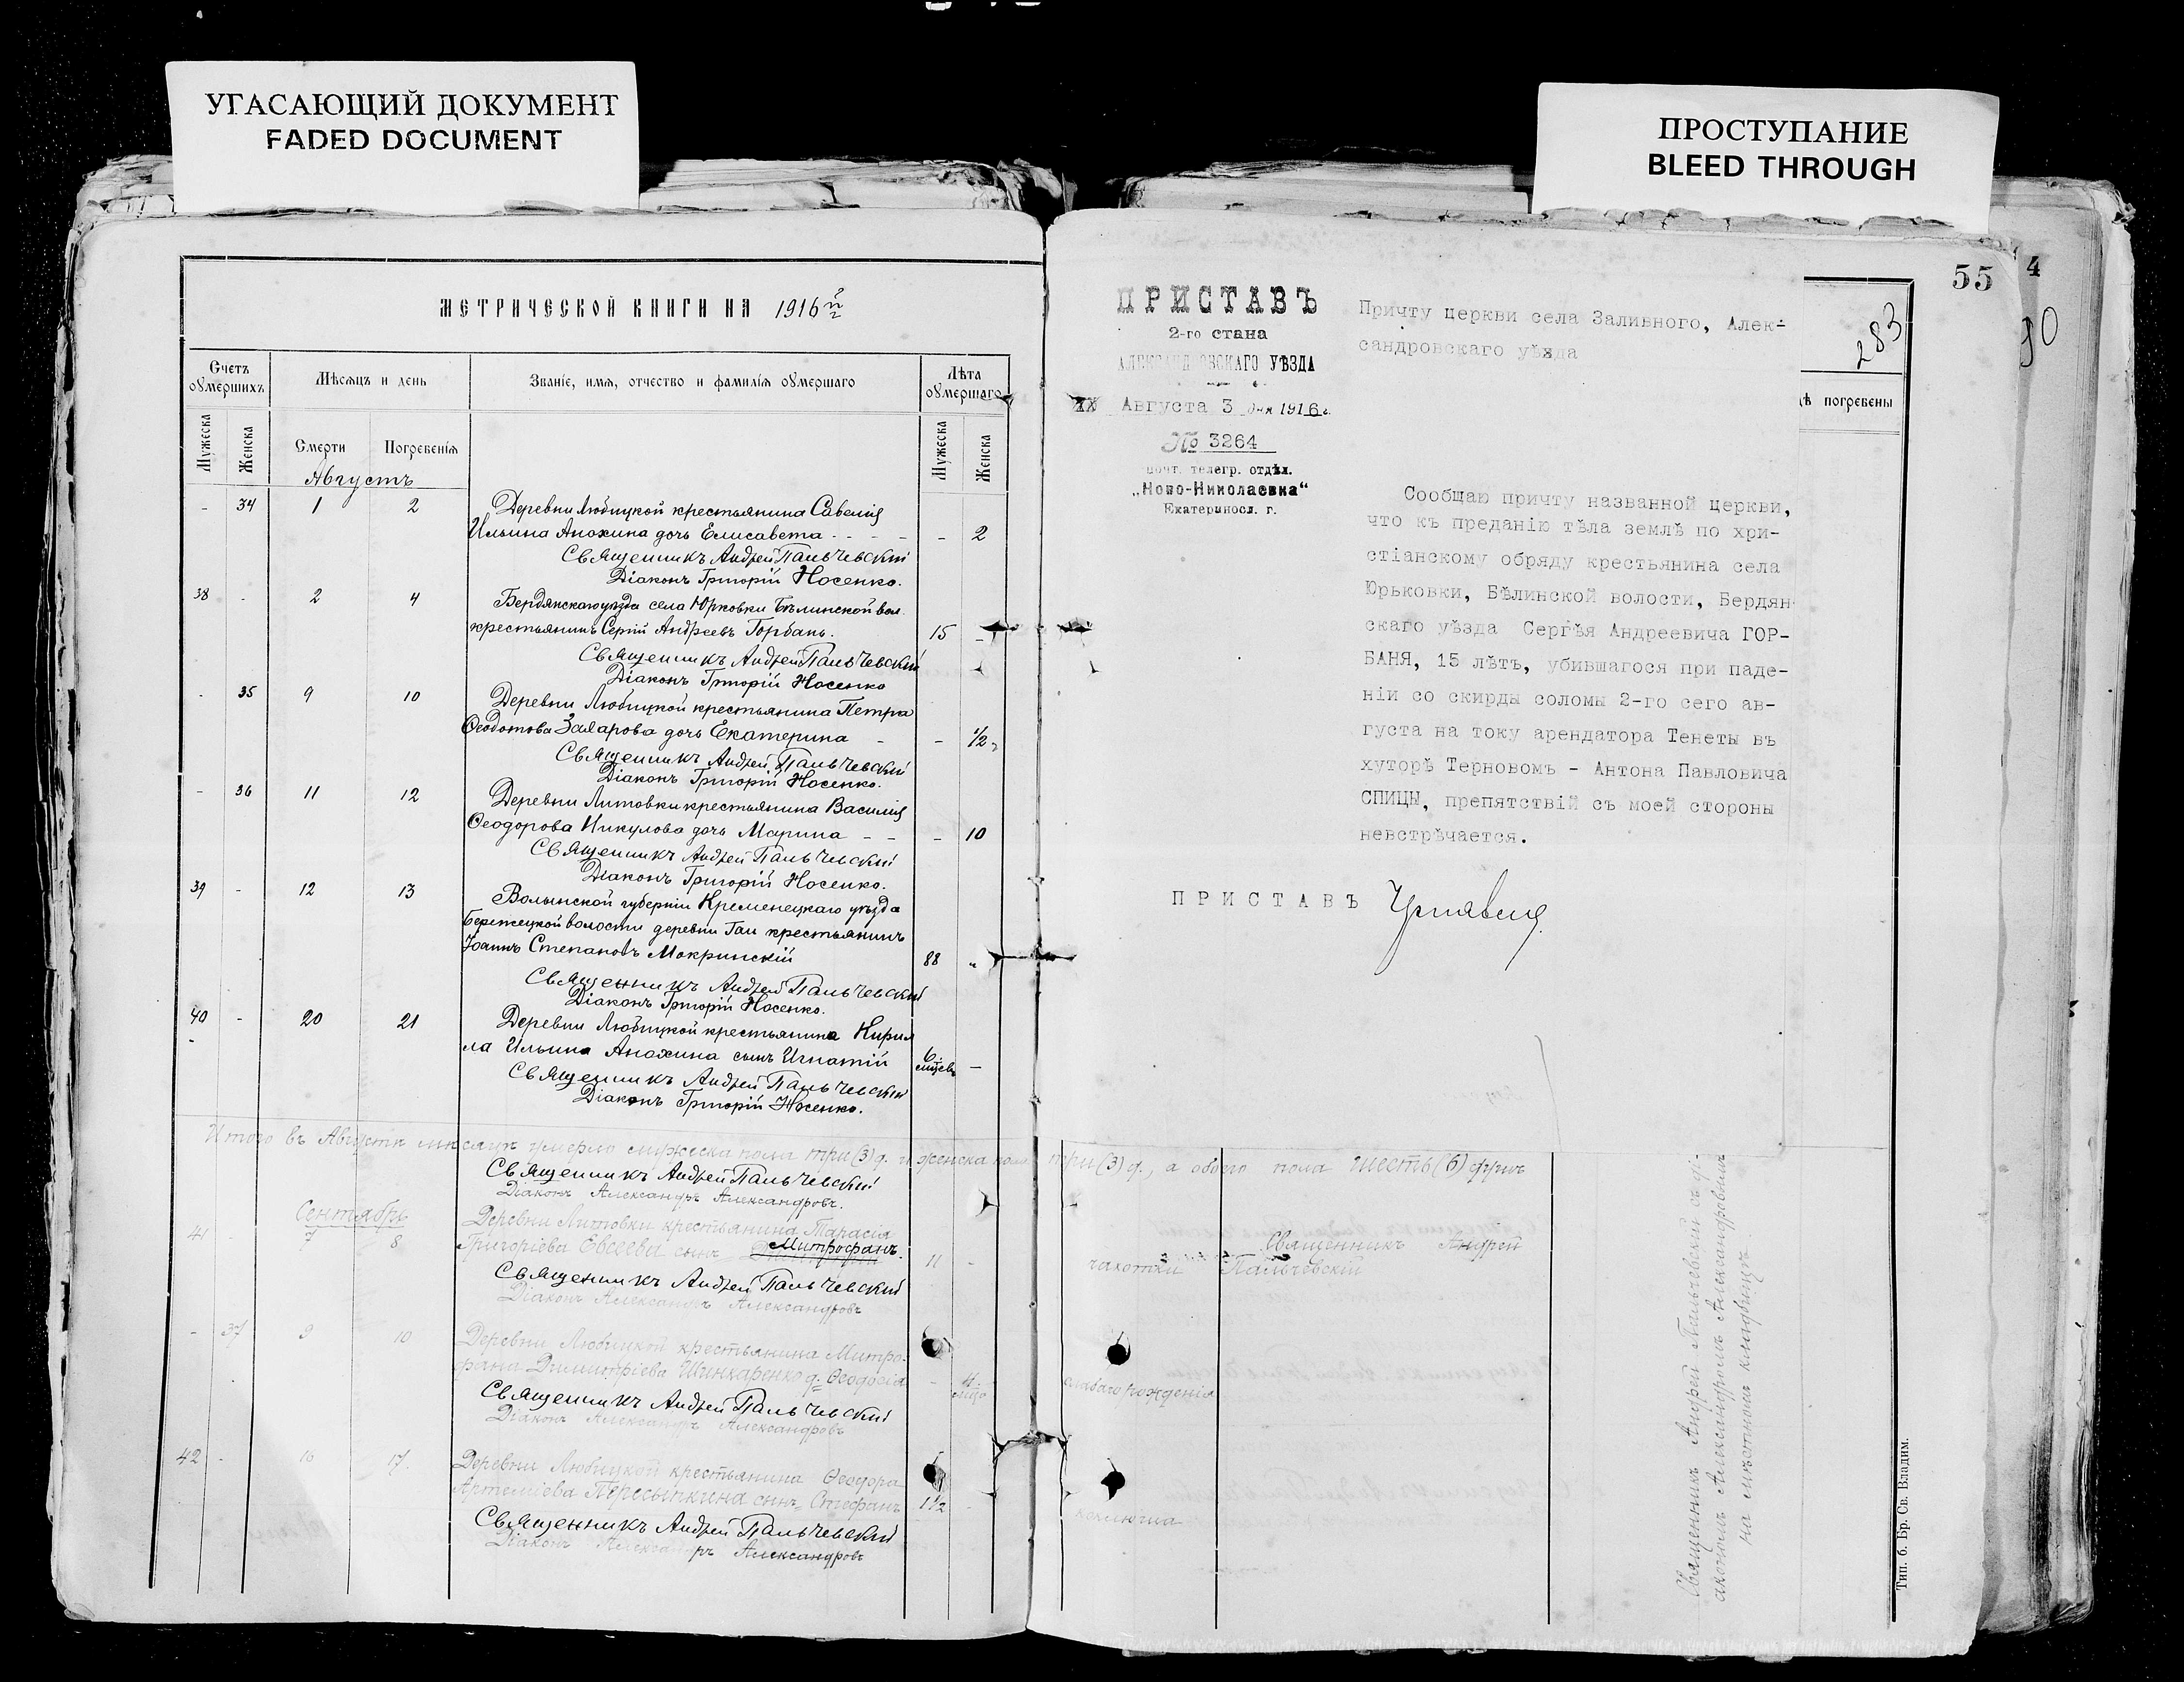 УГАСАЮЩИЙ ДОКУМЕНТ
FADED DOCUMENT
ПРОСТУПАНИЕ
BLEED THROUGH
МЕТРИЧЕСКОЙ КНИГИ НА 1916
Счетъ оумершихъ
Мѣсяцъ и день
Званіе, имя, отчество и фамилія оумершаго
Лѣта оумершаго
Мужеска
Женска
Смерти
Погребенія
Мужеска
Женска
Августъ
- 34 1 2 Деревни Любицкой крестьянина Савелія
Ильина Анохина дочь Елисавета - - - - - 2
Священникъ Андрей Пальчевскій
Діаконъ Григорій Носенко.
38 - 2 4 Бердянскаго уѣзда села Юрковки Бѣлинской вол.
крестьянинъ Сергій Андреевъ Горбань. 15 -
Священникъ Андрей Пальчевскій
Діаконъ Григорій Носенко
- 35 9 10 Деревни Любицкой крестьянина Петра
Ѳеодотова Захарова дочь Екатерина - - 1/2
Священникъ Андрей Пальчевскій
Діаконъ Григорій Носенко.
- 36 11 12 Деревни Литовки крестьянина Василія
Ѳеодорова Никулова дочь Марина - - - 10
Священникъ Андрей Пальчевскій
Діаконъ Григорій Носенко.
39 - 12 13 Волынской губерніи Кременецкаго уѣзда
Бережецкой волости деревни Гаи крестьянинъ
Іоаннъ Степановъ Мокринскій 88 "
Священникъ Андрей Пальчевскій
Діаконъ Григорій Носенко.
40 - 20 21 Деревни Любицкой крестьянина Кирил
ла Ильина Анохина сынъ Игнатій 6 -
Священникъ Андрей Пальчевскій
Діаконъ Григорій Носенко.
Итого въ Августѣ мѣсяцѣ умерло мужеска пола три (3) д. и женска пола три (3) д., а обоего пола шесть (6) душъ
Священникъ Андрей Пальчевскій
Діаконъ Александръ Александровъ.
Сентябрь
41 7 8 Деревни Литовки крестьянина Тарасія
Григоріева Евсеева сынъ Митрофанъ. 11 -
Священникъ Андрей Пальчевскій
Діаконъ Александръ Александровъ
- 37 9 10 Деревни Любицкой крестьянина Митро-
фана Димитріева Шинкаренко д. Ѳеодосія -
Священникъ Андрей Пальчевскій
Діаконъ Александръ Александровъ
42 - 16 17. Деревни Любицкой крестьянина Ѳеодора
Артеміева Пересыпкина сынъ Стефанъ 1 1/2 -
Священникъ Андрей Пальчевскій
Діаконъ Александръ Александровъ
55
4
90
283
дѣ погребены
ПРИСТАВЪ
2-го стана
АЛЕКСАНДРОВСКАГО УѢЗДА
Августа 3 дня 1916 г.
№ 3264
почт. телегр. отдѣл.
„Ново-Николаевка“
Екатеринос. г.
Причту церкви села Заливного, Алек-
сандровскаго уѣзда
Сообщаю причту названной церкви,
что къ преданію тѣла землѣ по хри-
стіанскому обряду крестьянина села
Юрьковки, Бѣлинской волости, Бердян-
скаго уѣзда Сергѣя Андреевича ГОР-
БАНЯ, 15 лѣтъ, убившагося при паде-
ніи со скирды соломы 2-го сего ав-
густа на току арендатора Тенеты въ
хуторѣ Терновомъ - Антона Павловича
СПИЦЫ, препятствій съ моей стороны
невстрѣчается.
ПРИСТАВЪ
чахотки
Священникъ Андрей
Пальчевскій
слабаго рожденія
коклюша
Священникъ Андрей Пальчевскій съ ді-
акономъ Александромъ Александровымъ
на мѣстномъ кладбищѣ
Тип. б. Бр. Св. Владим.